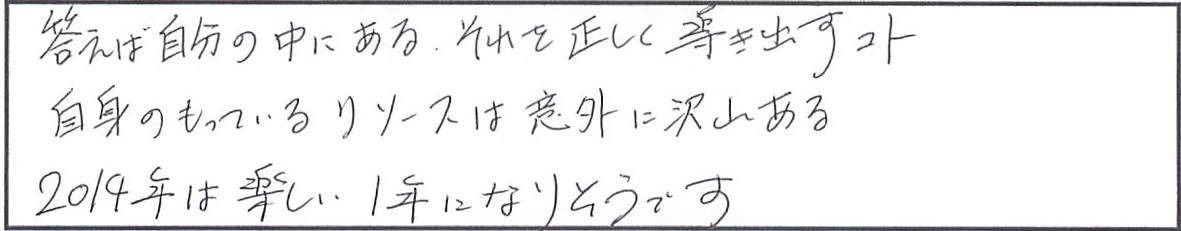 答えは自分の中にある。それを正しく導き出すコト
自身のもっているリソースは意外に沢山ある
2014年は楽しい1年になりそうです